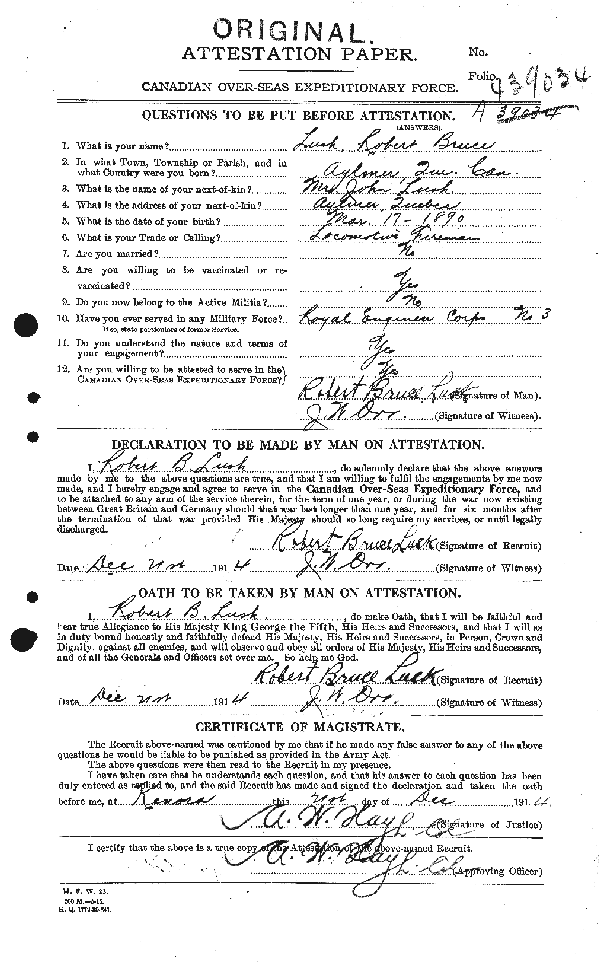 ORIGINAL.
ATTESTATION PAPER.
No.
Folio. 439034
CANADIAN OVER-SEAS EXPEDITIONARY FORCE.
QUESTIONS TO BE PUT BEFORE ATTESTATION. A 39034
(ANSWERS)
1. What is your name? Lusk Robert Bruce
2. In what Town, Township or Parish, and in
what Country were you born? Aylmer Que. Can
3. What is the name of your next-of-kin? Mrs John Lusk
4. What is the address of your next-of-kin? Aylmer Quebec
5. What is the date of your birth? Mar. 17 - 1890
6. What is your Trade or Calling? Locomotive Fireman
7. Are you married? No
8. Are you willing to be vaccinated or re-
vaccinated? Yes
9. Do you now belong to the Active Militia? No
10. Have you ever served in any Military Force? Royal Engineer Corps No 3
If so, state particulars of former Service.
11. Do you understand the nature and terms of
your engagement? Yes
12. Are you willing to be attested to serve in the
CANADIAN OVER-SEAS EXPEDITIONARY FORCE? Yes
Robert Bruce Lusk (Signature of Man).
J. W. Orr. (Signature of Witness).
DECLARATION TO BE MADE BY MAN ON ATTESTATION.
I, Robert B. Lusk, do solemnly declare that the above answers
made by me to the above questions are true, and that I am willing to fulfil the engagements by me now
made, and I hereby engage and agree to serve in the Canadian Over-Seas Expeditionary Force, and
to be attached to any arm of the service therein, for the term of one year, or during the war now existing
between Great Britain and Germany should that war last longer than one year, and for six months after
the termination of that war provided His Majesty should so long require my services, or until legally
discharged.
Robert Bruce Lusk (Signature of Recruit)
Date Dec 22nd 1914 J. W. Orr. (Signature of Witness)
OATH TO BE TAKEN BY MAN ON ATTESTATION.
I, Robert B. Lusk, do make Oath, that I will be faithful and
bear true Allegiance to His Majesty King George the Fifth, His Heirs and Successors, and that I will as
in duty bound honestly and faithfully defend His Majesty, His Heirs and Successors, in Person, Crown and
Dignity, against all enemies, and will observe and obey all orders of His Majesty, His Heirs and Successors,
and of all the Generals and Officers set over me. So help me God.
Robert Bruce Lusk (Signature of Recruit)
Date Dec 22nd 1914 J. W. Orr. (Signature of Witness)
CERTIFICATE OF MAGISTRATE.
The Recruit above-named was cautioned by me that if he made any false answer to any of the above
questions he would be liable to be punished as provided in the Army Act.
The above questions were then read to the Recruit in my presence.
I have taken care that he understands each question, and that his answer to each question has been
duly entered as replied to, and the said Recruit has made and signed the declaration and taken the oath
before me, at Kenora this 22nd day of Dec 1914
A. W. Hay (Signature of Justice)
I certify that the above is a true copy of the Attestation of the above-named Recruit.
A. W. Hay (Approving Officer)
M. F. W. 23.